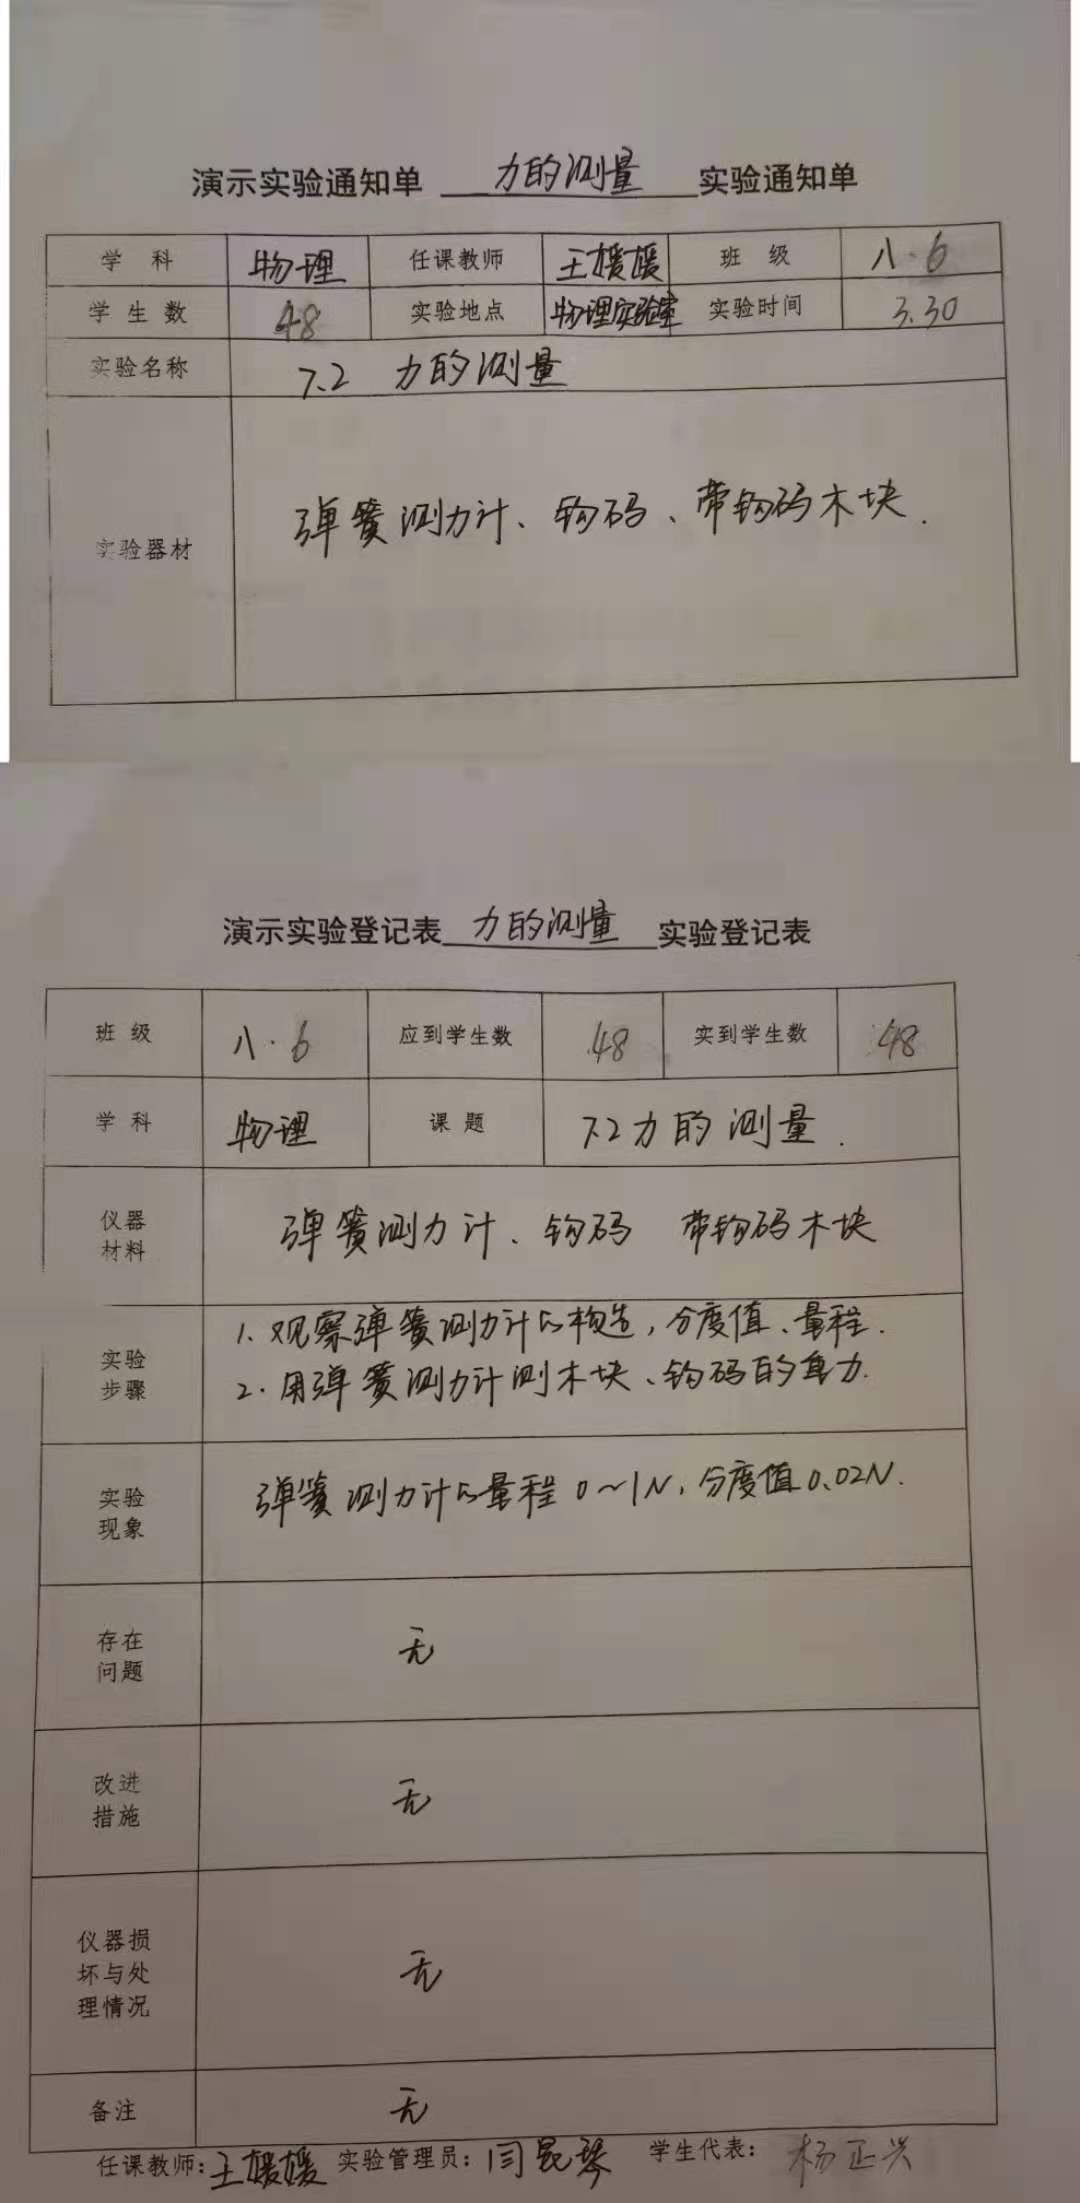 演示实验通知单 力的测量 实验通知单
学 科 物理 任课教师 王媛媛 班 级 八.6
学 生 数 48 实验地点 物理实验室 实验时间 3.30
实验名称 7.2 力的测量
实验器材 弹簧测力计、钩码、带钩码木块.
演示实验登记表 力的测量 实验登记表
班 级 八.6 应到学生数 48 实到学生数 48
学 科 物理 课 题 7.2力的测量.
仪器
材料
弹簧测力计、钩码 带钩码木块
实验
步骤
1.观察弹簧测力计的构造,分度值、量程.
2.用弹簧测力计测木块、钩码的重力.
实验
现象
弹簧测力计的量程0~1N,分度值0.02N.
存在
问题
无
改进
措施
无
仪器损
坏与处
理情况
无
备注 无
任课教师:王媛媛 实验管理员:闫昆琴 学生代表: 杨正兴